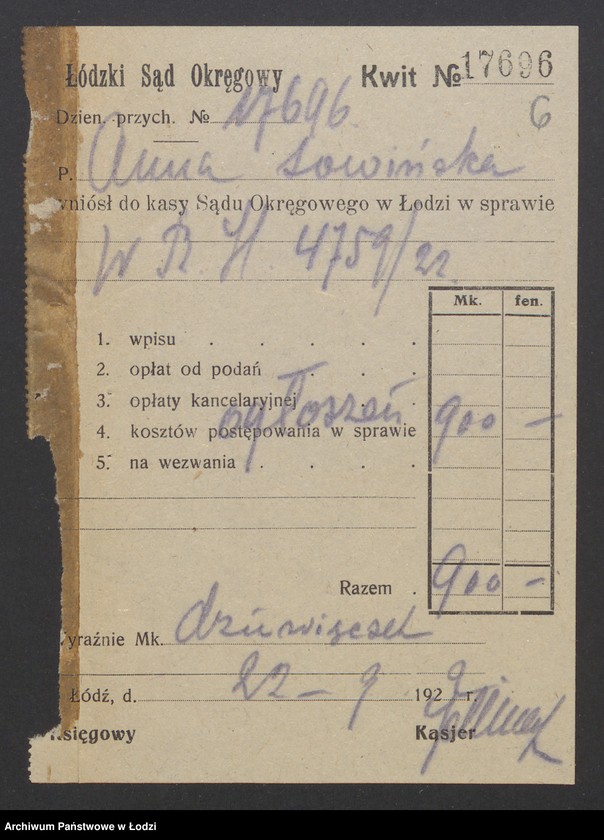 Łódzki Sąd Okręgowy Kwit № 17696
Dzien. przych. № 17696.
6
P. Anna Sowińska
wniósł do kasy Sądu Okręgowego w Łodzi w sprawie
W R. H. 4759/22.
Mk. fen.
1. wpisu . . . . .
2. opłat od podań . . .
3. opłaty kancelaryjnej .
ogłoszeń 900 —
4. kosztów postępowania w sprawie
5. na wezwania . . . .
Razem . 900 —
wyraźnie Mk. dziewięćset
Łódź, d. 22 – 9 192 r.
Księgowy Kasjer
Archiwum Państwowe w Łodzi